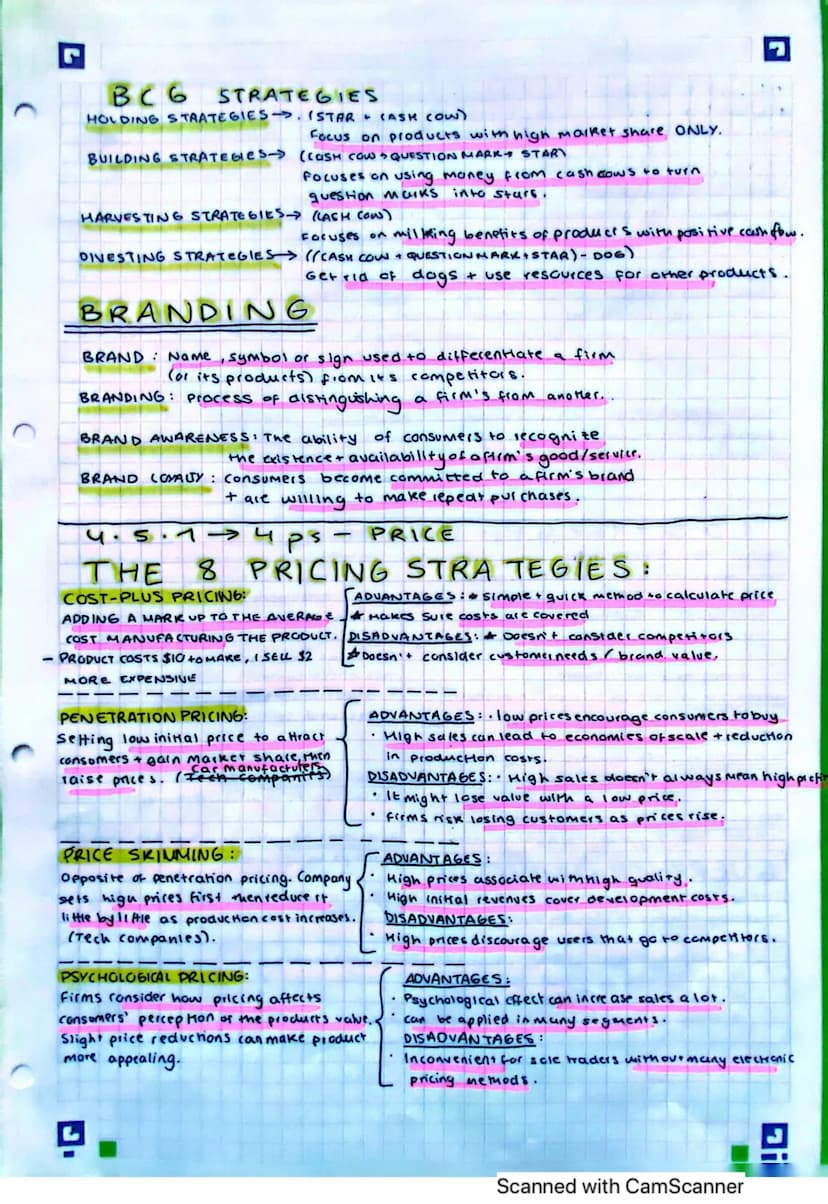 BCG STRATEGIES
HOLDING STRATEGIES → . (STAR + CASH COW)
Focus on products with high market share ONLY.
BUILDING STRATEGIES → (CASH COW → QUESTION MARK → STAR)
Focuses on using money from cash cows to turn
question marks into stars.
HARVESTING STRATEGIES → (CASH COW)
Focuses on milking benefits of products with positive cash flow.
DIVESTING STRATEGIES → ((CASH COW + QUESTION MARK + STAR) - DOG)
Get rid of dogs + use resources for other products.
BRANDING
BRAND : Name, symbol or sign used to differentiate a firm
(or its products) from its competitors.
BRANDING: Process of distinguishing a firm's from another.
BRAND AWARENESS: The ability of consumers to recognize
the existence + availability of a firm's good/service.
BRAND LOYALTY : consumers become committed to a firm's brand
+ are willing to make repeat purchases.
4.5.1 → 4 ps - PRICE
THE 8 PRICING STRATEGIES:
COST-PLUS PRICING:
ADDING A MARK UP TO THE AVERAGE
COST MANUFACTURING THE PRODUCT.
- PRODUCT COSTS $10 to MAKE, I SELL $2
MORE EXPENSIVE
ADVANTAGES: * Simple + quick method to calculate price
* Makes sure costs are covered
DISADVANTAGES: * Doesn't consider competitors
* Doesn't consider customer needs / brand value.
PENETRATION PRICING:
Setting low initial price to attract
consumers + gain market share, then
car manufacturers
raise prices. (Tech companies)
ADVANTAGES: · low prices encourage consumers to buy
· High sales can lead to economies of scale + reduction
in production costs.
DISADVANTAGES: · High sales doesn't always mean high profit
· It might lose value with a low price.
· Firms risk losing customers as prices rise.
PRICE SKIMMING:
Opposite of penetration pricing. Company
sets high prices first then reduce it
little by little as production cost increases.
(Tech companies).
ADVANTAGES:
· High prices associate with high quality.
· High initial revenues cover development costs.
DISADVANTAGES:
· High prices discourage users that go to competitors.
PSYCHOLOGICAL PRICING:
Firms consider how pricing affects
consumers' perception of the products value.
Slight price reductions can make product
more appealing.
ADVANTAGES:
· Psychological effect can increase sales a lot.
· can be applied in many segments.
DISADVANTAGES:
· Inconvenient for sole traders without many electronic
pricing methods.
Scanned with CamScanner